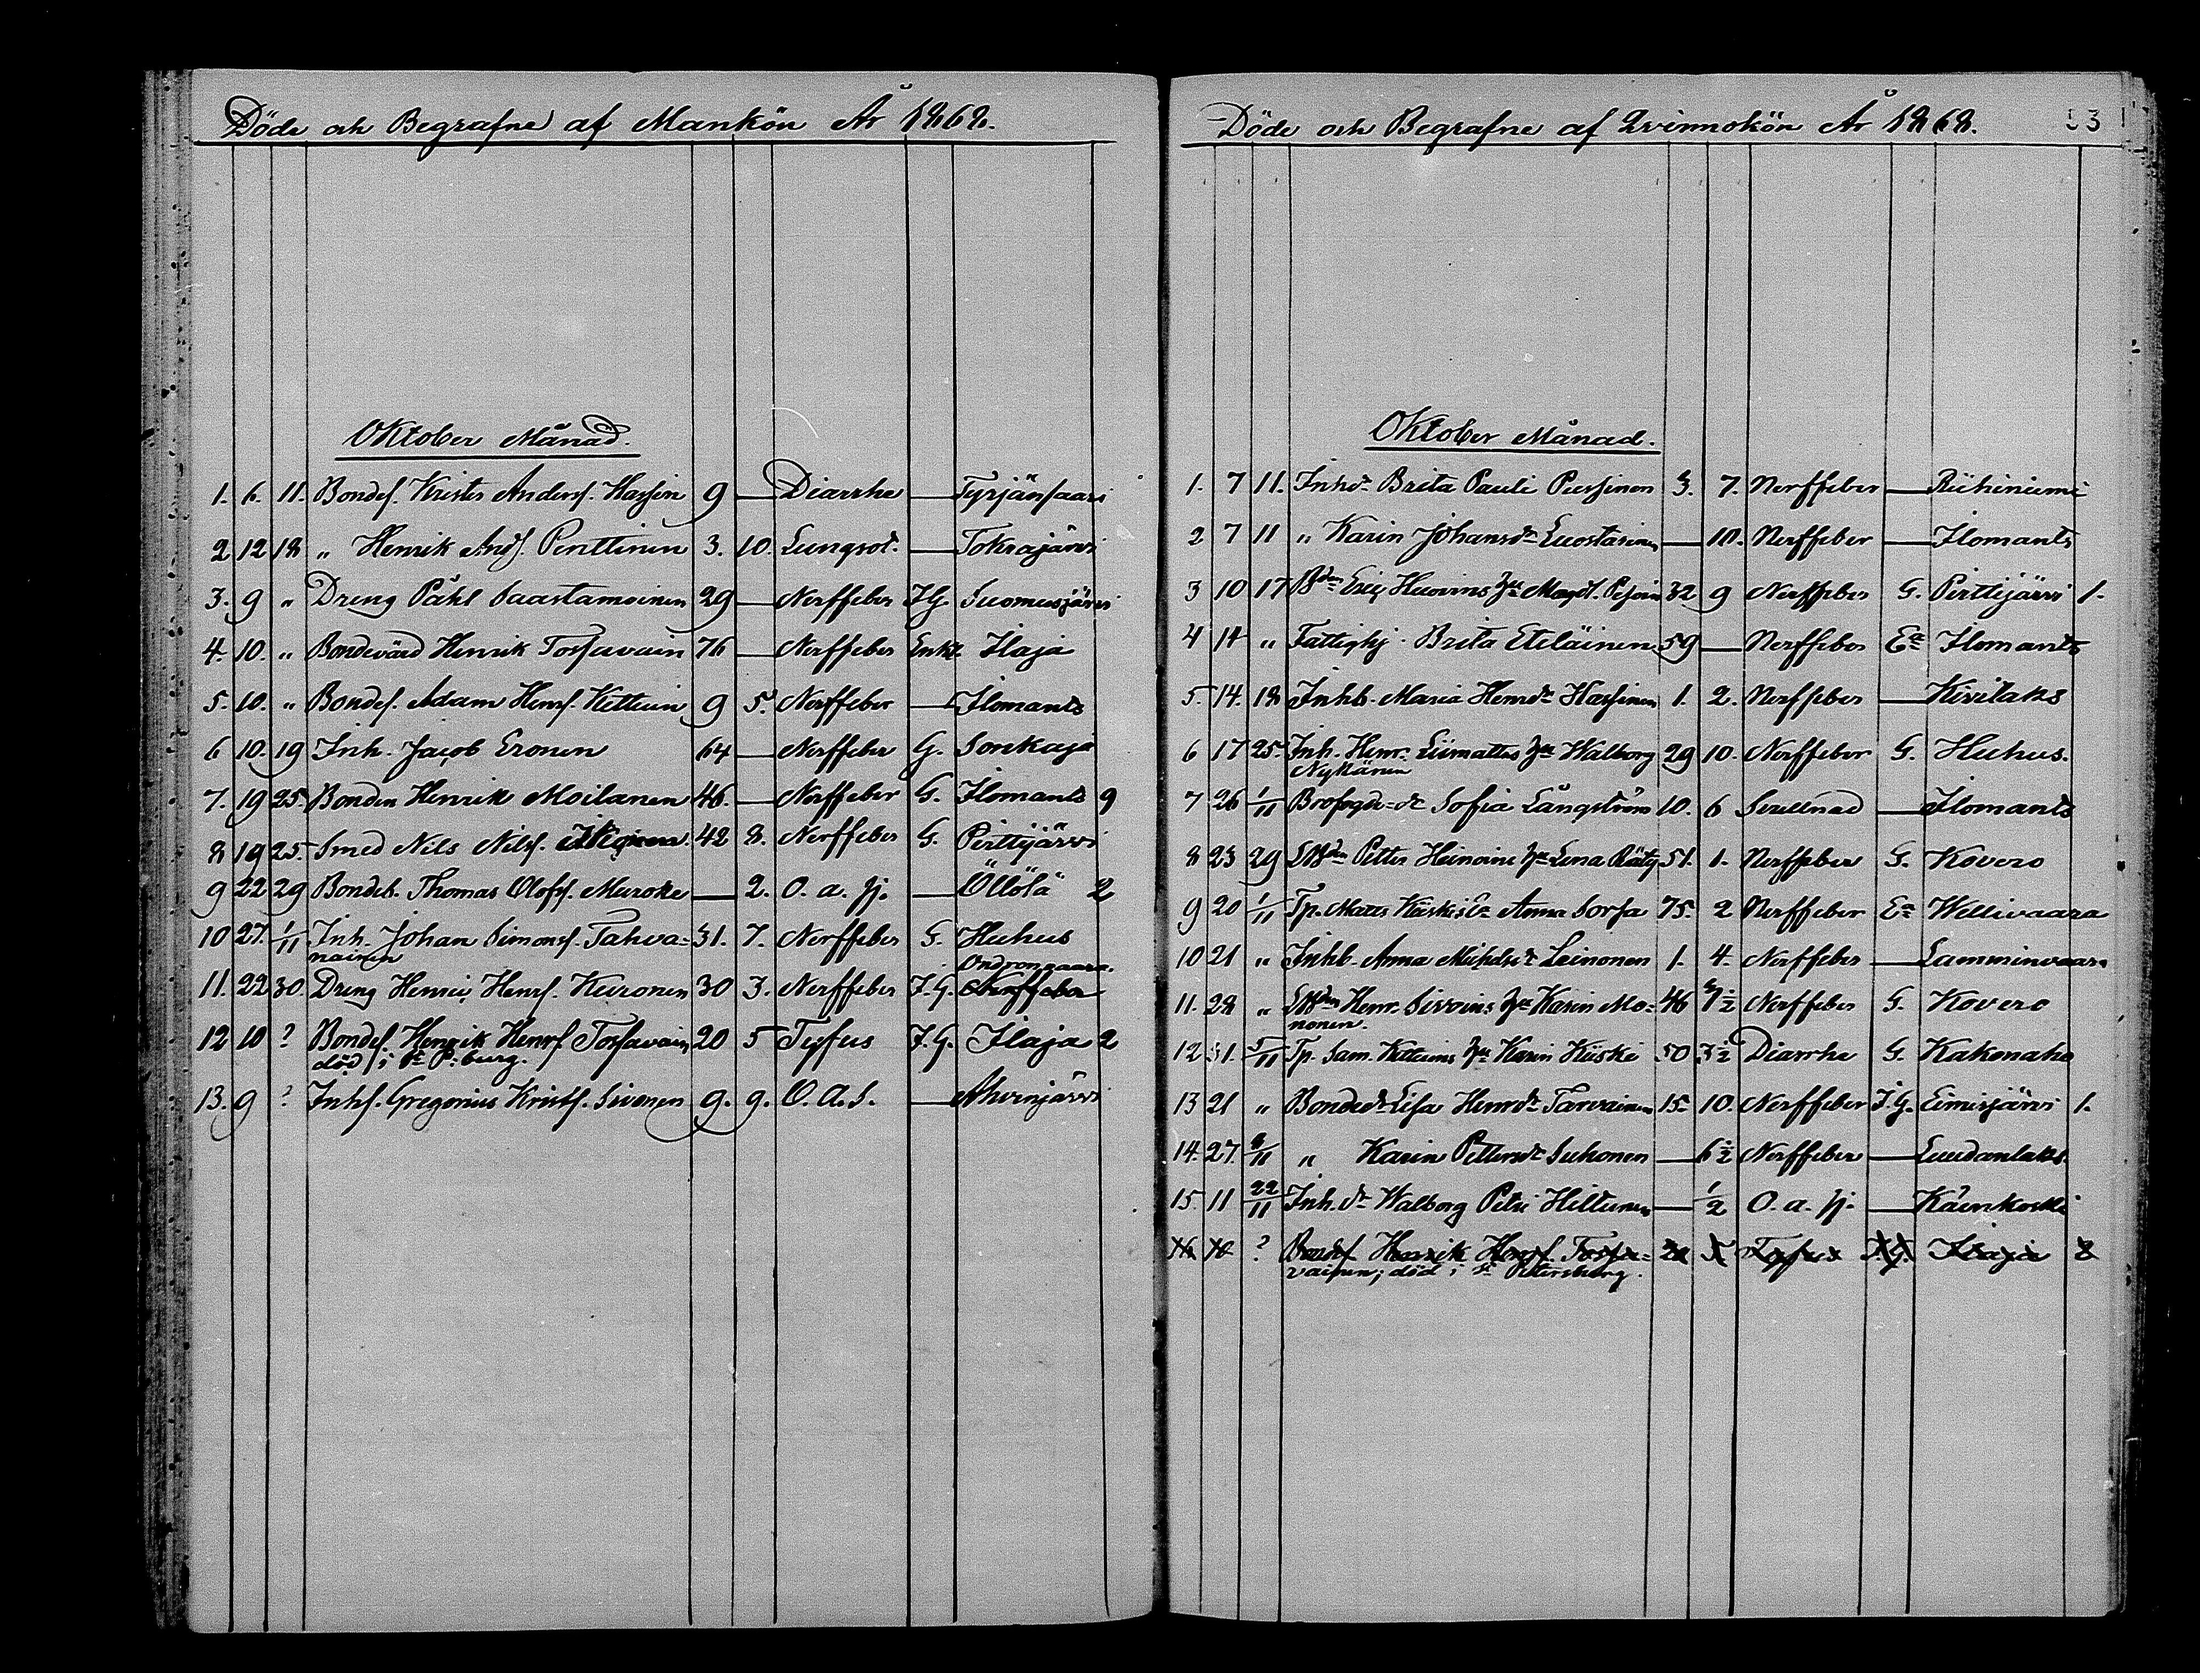 Döde och Begrafne af Mankön År 1868.
Oktober Månad.
1. 6. 11. Bondes. Krister Anders. Hassin 9 — Diarrhe — Tyrjänsaari
2 12 18 " Henrik Ands. Penttinen 3. 10. Lungsot. — Tokrajärvi
3. 9 " Dreng Påhl Saastamoinen 29 — Nerffeber J.G. Suomusjärvi
4. 10. " Bondevärd Henrik Tossavain 76 — Nerffeber Enkl. Ilaja
5. 10. " Bondes. Adam Hens. Kettuin 9 5. Nerffeber — Ilomants
6 10. 19 Inh. Jacob Eronen 64 — Nerffeber G. Sonkaja
7. 19 25. Bonden Henrik Moilanen 46. — Nerffeber G. Ilomants 9
8 19 25. Smed Nils Nils. 42 8. Nerffeber G. Pirttijärvi
9 22 29 Bondeb. Thomas Olofs. Muroke — 2. O. a. sj. — Öllölä 2
10 27. 1/11 Inh. Johan Simons. Tahva= 31. 7. Nerffeber G. Huhus
nainen
11. 22 30. Dreng Henric Henrs. Kuronen 30 3. Nerffeber J.G. Nerffeber
12 10 ? Bondes. Henrik Henrs. Tossavain 20 5 Tyfus J.G. Ilaja 2
död i St P:burg.
13. 9 ? Inhs. Gregorius Krists. Sivonen 9. 9. O. A. S. — Ahvenjärvi
Döde och Begrafne af Qvinnokön År 1868. 53
Oktober Månad.
1. 7 11. Inhdr Brita Pauli Pussinen 3. 7. Nerffeber — Riihiniemi
2 7 11 " Karin Johansdr Luostarinen — 10. Nerffeber — Ilomants
3 10 17 Bden Eric Huovins hu Magd. Pesoin 32 9 Nerffeber G. Pirttijärvi 1.
4 14 " Fattighj. Brita Eteläinen 59 — Nerffeber Ea Ilomants
5. 14. 18 Inhb. Maria Henrdr Hassinen 1. 2. Nerffeber — Kivilaks
6 17 25. Inh. Henr. Liimattas hu Walborg 29 10. Nerffeber G. Huhus.
Nykänen
7 26 1/11 Brofogde-dr Sofia Långström 10. 6 Svullnad — Ilomants
8 23 29 LBden Petter Heinoins hu Lena Räty 51. 1. Nerffeber G. Kovero
9 20 1/11 Tp. Matts Kiiskis Ea Anna Sorsa 75. 2 Nerffeber Ea Wellivaara
10 21 " Inhb. Anna Michelsdr Leinonen 1. 4. Nerffeber — Lamminvaara
11. 28 " LBden Henr. Sivoins hu Karin Mo= 46 Nerffeber G. Kovero
nonen.
12 31. 5/11 Tp. Sam. Kettuins hu Karin Kiiski 50 3 1/2 Diarrhe G. Kakonaho
13 21 " Bondedr Lisa Henrdr Tarvainen 15. 10. Nerffeber J.G. Eimisjärvi 1.
14. 27. 8/11 " Karin Pettersdr Suhonen — 6 1/2 Nerffeber — Luudanlaks.
15. 11 22/11 Inh.dr Walborg Petri Hiltunen — 1/2 O. a. sj. — Käenkoski
16 10 ? Bondes Henrik Henrs. Tossa= 20 5 Tyfus J.G. Ilaja 2
vainen; död i St Petersburg.